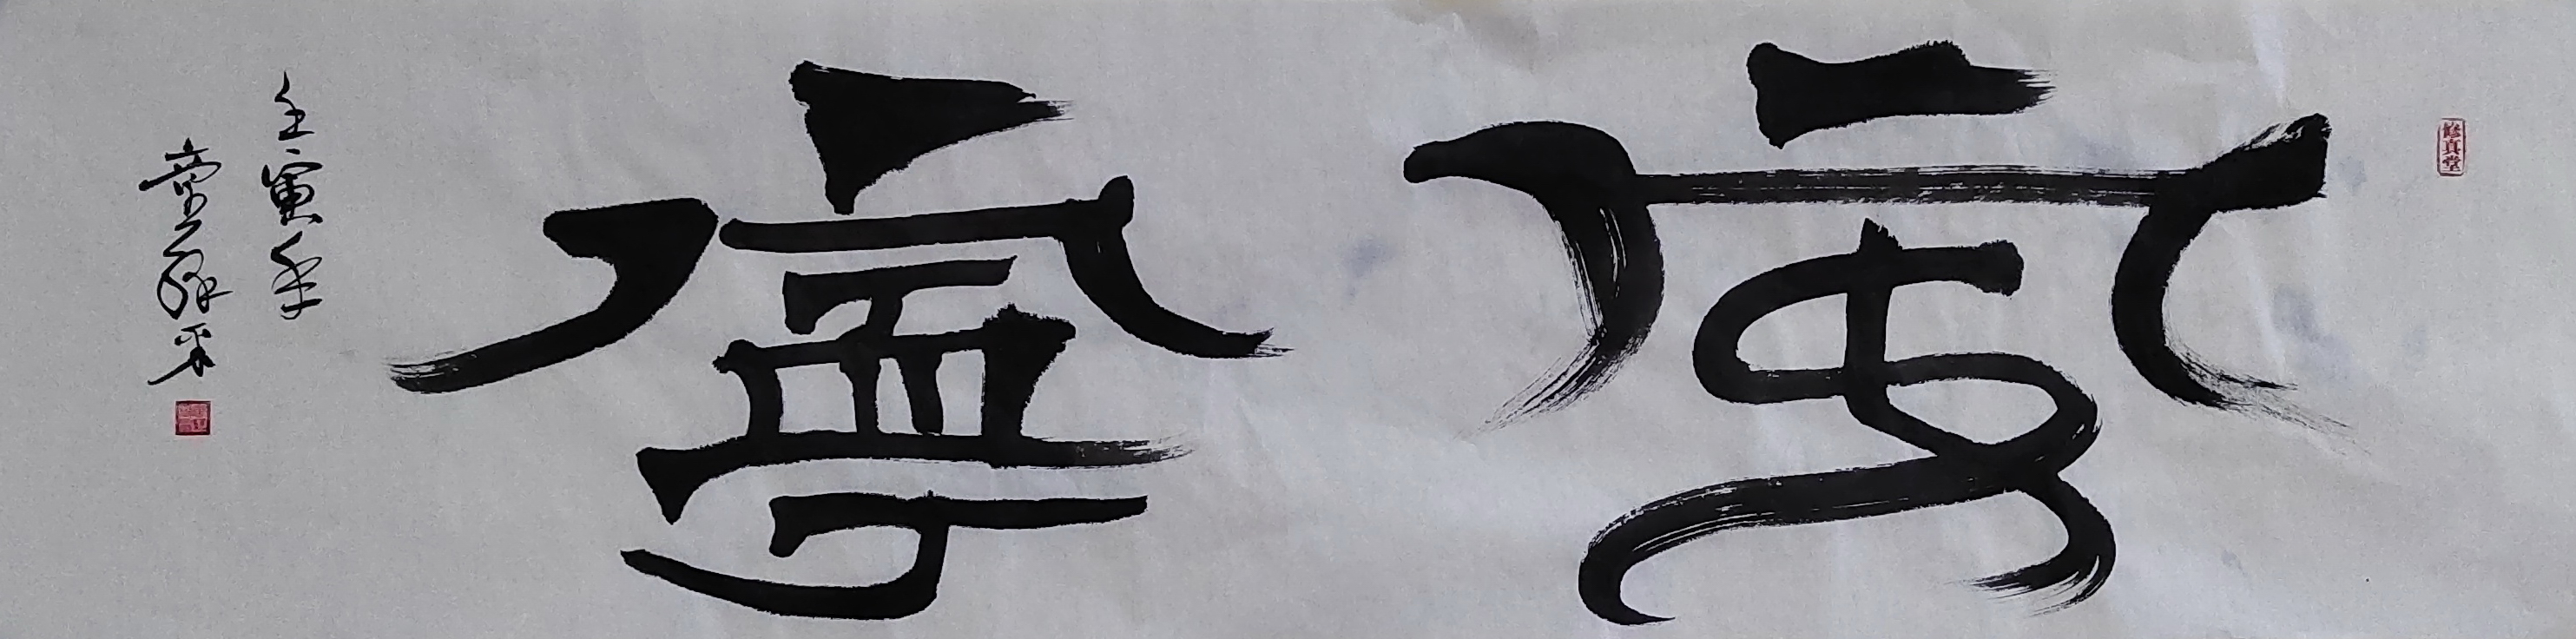 修真堂
安寧
壬寅年